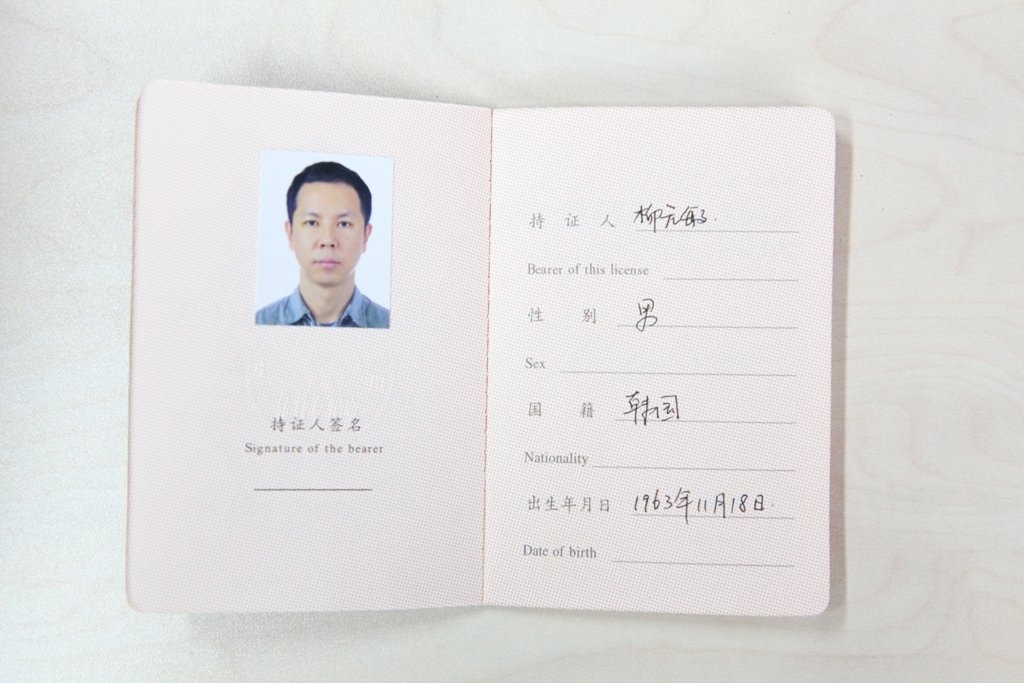 持证人签名
Signature of the bearer
持 证 人 柳元敏.
Bearer of this license
性 别 男
Sex
国 籍 韩国
Nationality
出生年月日 1963年11月18日.
Date of birth